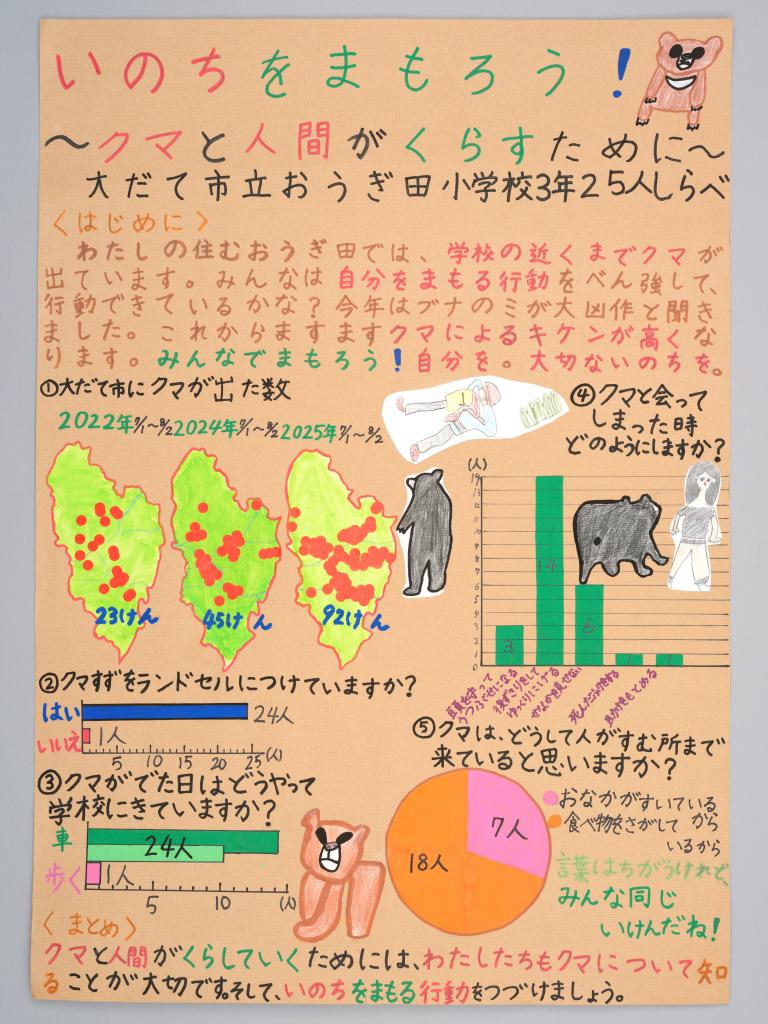 いのちをまもろう!
〜クマと人間がくらすために〜
大だて市立おうぎ田小学校3年25人しらべ
〈はじめに〉
わたしの住むおうぎ田では、学校の近くまでクマが
出ています。みんなは自分をまもる行動をべん強して、
行動できているかな?今年はブナのミが大凶作と聞き
ました。これからますますクマによるキケンが高くな
ります。みんなでまもろう!自分を。大切ないのちを。
①大だて市にクマが出た数
2022年7/1〜8/2 2024年7/1〜8/2 2025年7/1〜8/2
23けん 45けん 92けん
②クマすずをランドセルにつけていますか?
はい 24人
いいえ 1人
5 10 15 20 25 (人)
③クマがでた日はどうやって
学校にきていますか?
車 24人
歩く 1人
5 10 (人)
④クマと会って
しまった時
どのようにしますか?
(人)
14
13
12
11
10
9
8
7
6
5
4
3
2
1
0
3 14 6 1 1
うつぶせになる
後ずさりをして
ゆっくりにげる
せなかを見せない
死んだふりをする
助けをもとめる
⑤クマは、どうして人がすむ所まで
来ていると思いますか?
7人
18人
おなかがすいている
から
食べ物をさがして
いるから
言葉はちがうけれど、
みんな同じ
いけんだね!
〈まとめ〉
クマと人間がくらしていくためには、わたしたちもクマについて知
ることが大切です。そして、いのちをまもる行動をつづけましょう。